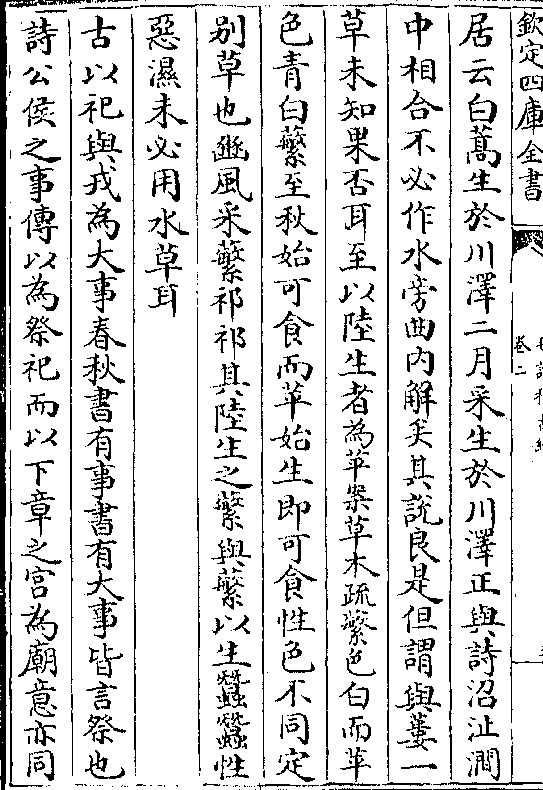 欽定四庫全書
卷二
居云白蒿生於川澤二月采生於川澤正與詩沼沚澗
中相合不必作水旁曲内解矣其說良是但謂與蔞一
草未知果否耳至以陸生者為苹案草木疏蘩色白而苹
色青白蘩至秋始可食而苹始生即可食性色不同定
别草也豳風采蘩祁祁其陸生之蘩與蘩以生蠶蠶性
惡濕未必用水草耳
古以祀與戎為大事春秋書有事書有大事皆言祭也
詩公侯之事傳以為祭祀而以下章之宫為廟意亦同